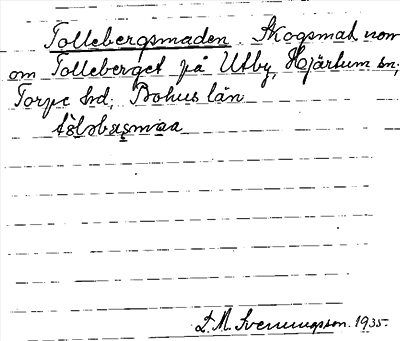 Tollebergsmaden. Skogsmad norr
om Tolleberget på Utby, Hjärtum sn,
Torpe hd, Bohus län

T. M. Svenungsson. 1935.